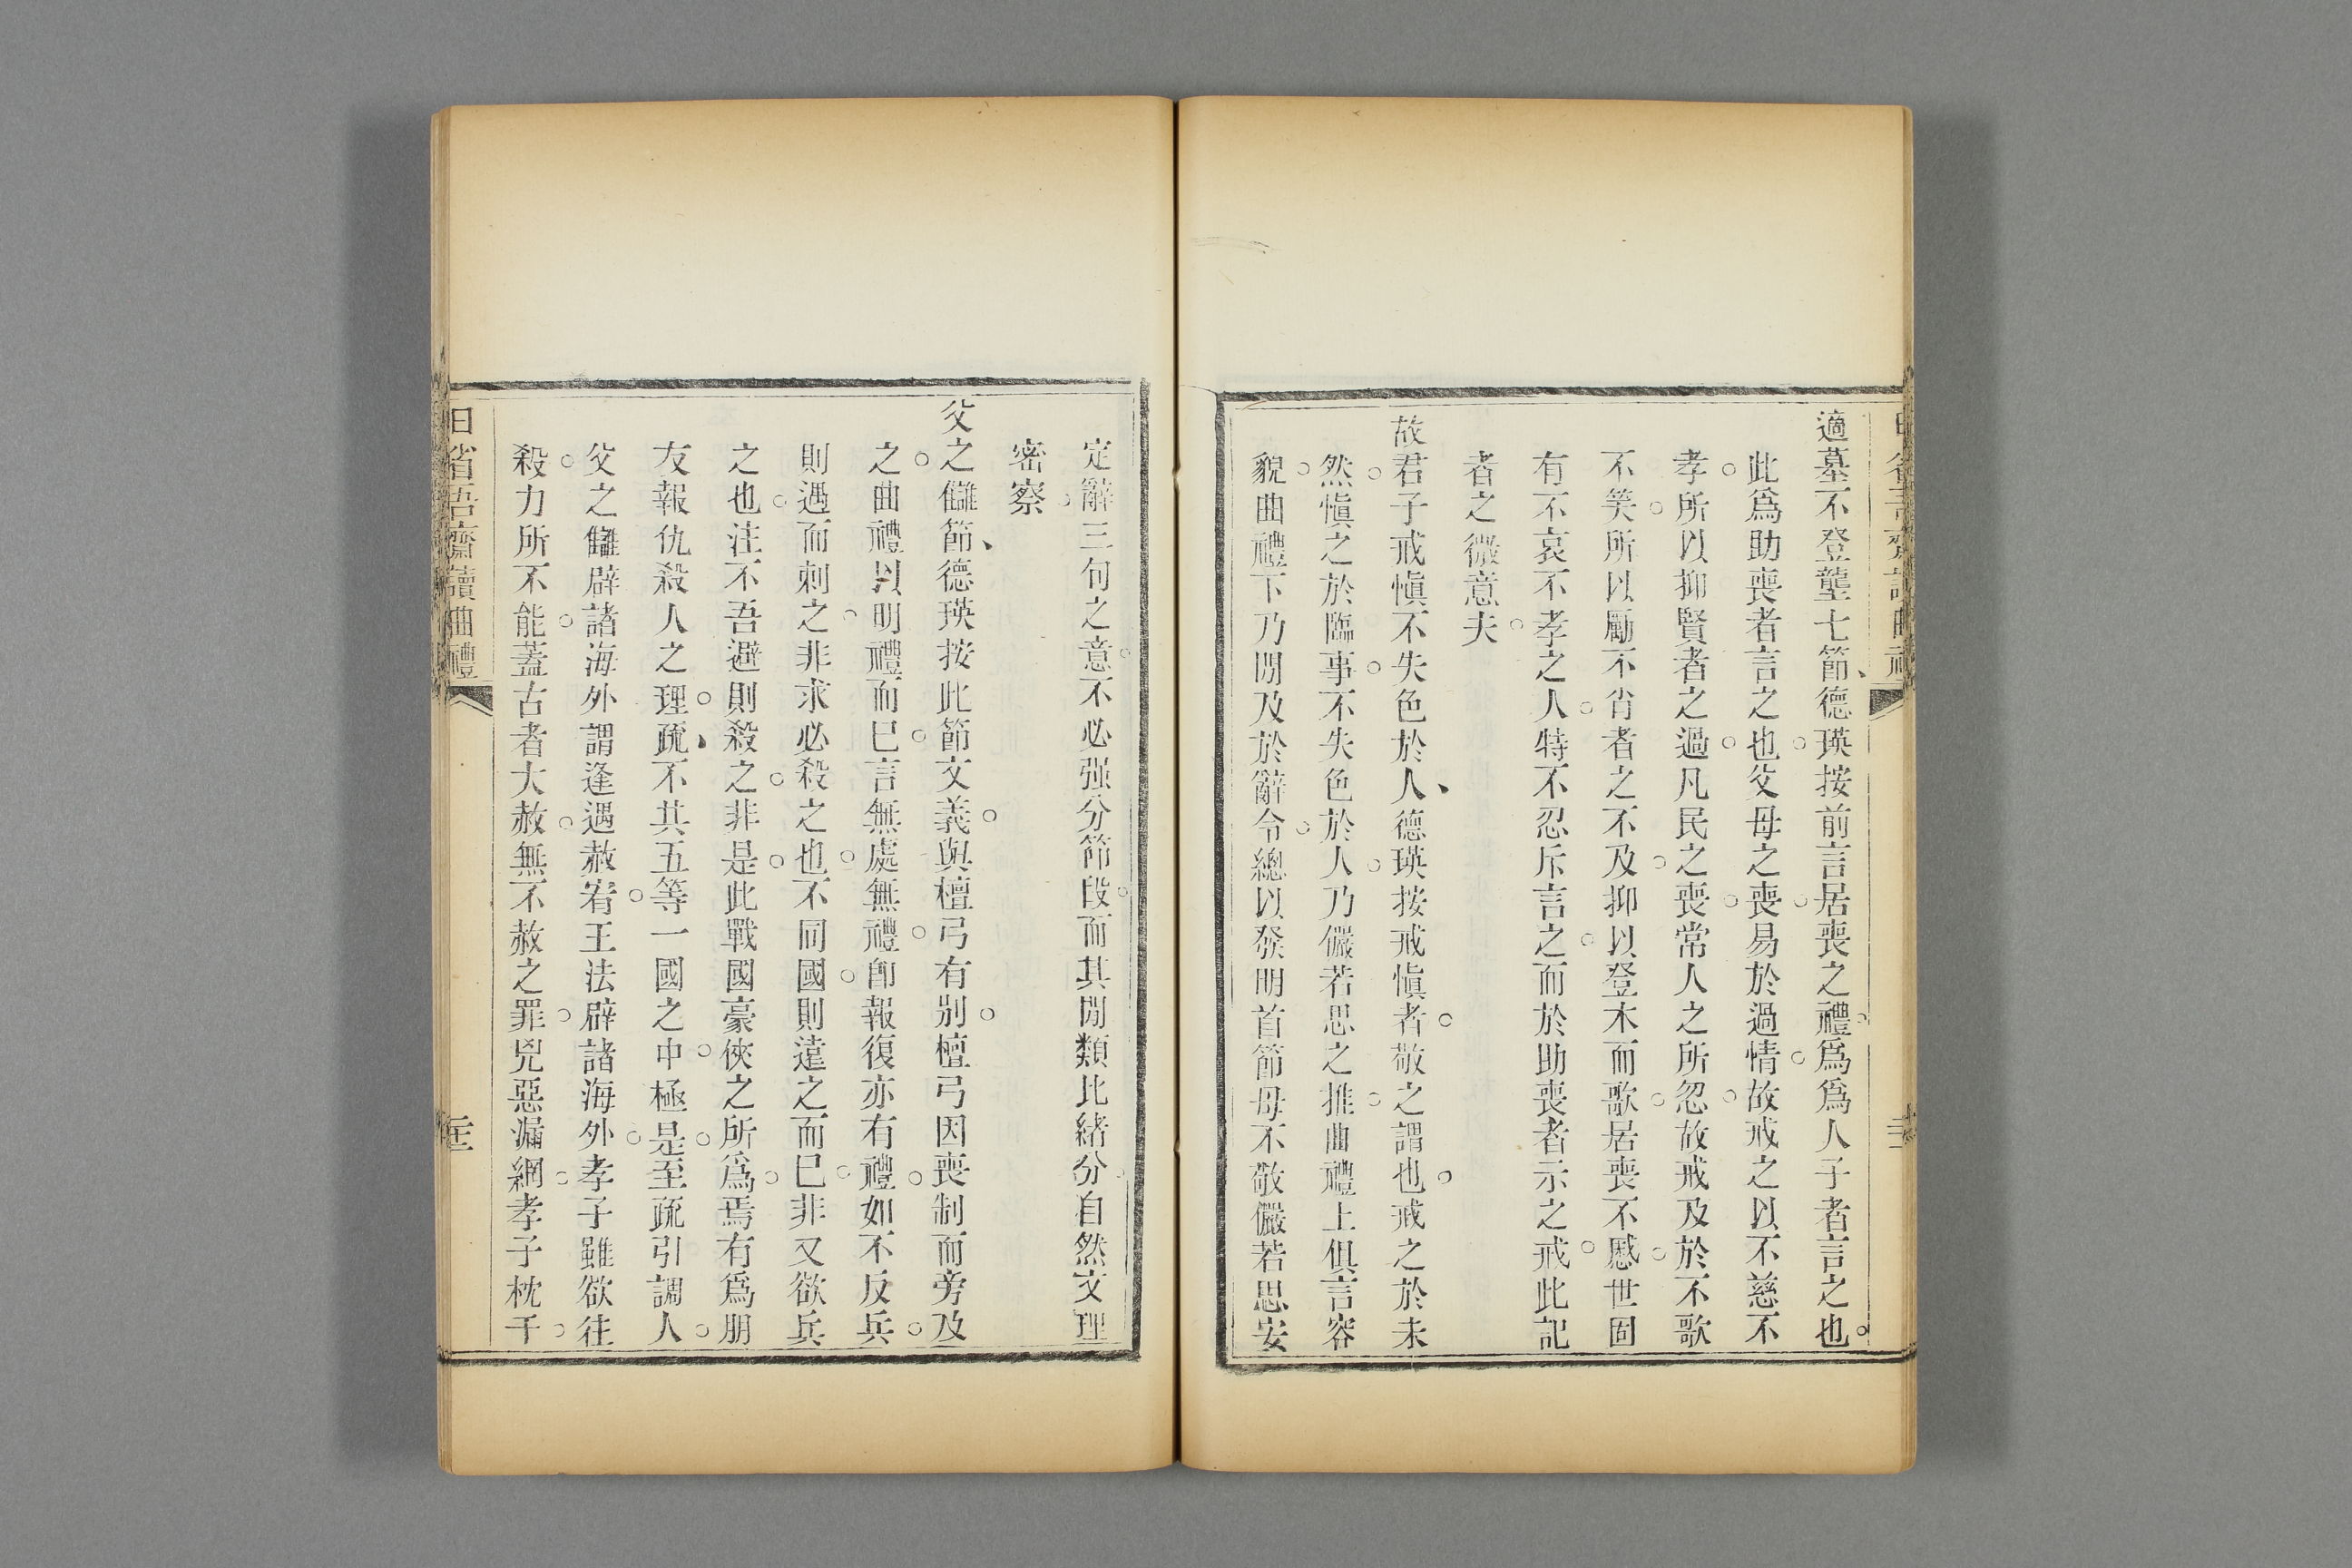 適墓不登壟七節、德瑛按前言居喪之禮。爲爲人子者言之也。
此爲助喪者言之也。父母之喪。易於過情。故戒之以不慈不
孝。所以抑賢者之過。凡民之喪。常人之所忽。故戒及於不歌
不笑。所以勵不肖者之不及。抑以登木而歌。居喪不慼。世固
有不哀不孝之人。特不忍斥言之。而於助喪者示之戒。此記
者之微意夫。
故君子戒愼不失色於人、德瑛按戒愼者。敬之謂也。戒之於未
然。愼之於臨事。不失色於人。乃儼若思之推。曲禮上俱言容
貌。曲禮下乃閒及於辭令。總以發明首節毋不敬儼若思安
定辭。三句之意。不必强分節段。而其閒類比緒分。自然文理
密察
父之讎節、德瑛按此節文義。與檀弓有别。檀弓因喪制而旁及
之。曲禮以明禮而已。言無處無禮。卽報復亦有禮。如不反兵。
則遇而刺之。非求必殺之也。不同國。則遠之而已。非又欲兵
之也。注不吾避則殺之。非是。此戰國豪俠之所爲。焉有爲朋
友報仇殺人之理。疏、不共五等一國之中。極是。至疏引調人。
父之讎辟諸海外謂逢遇赦宥。王法辟諸海外。孝子雖欲往
殺。力所不能。蓋古者大赦。無不赦之罪。兇惡漏網。孝子枕干。
日省吾齋讀曲禮